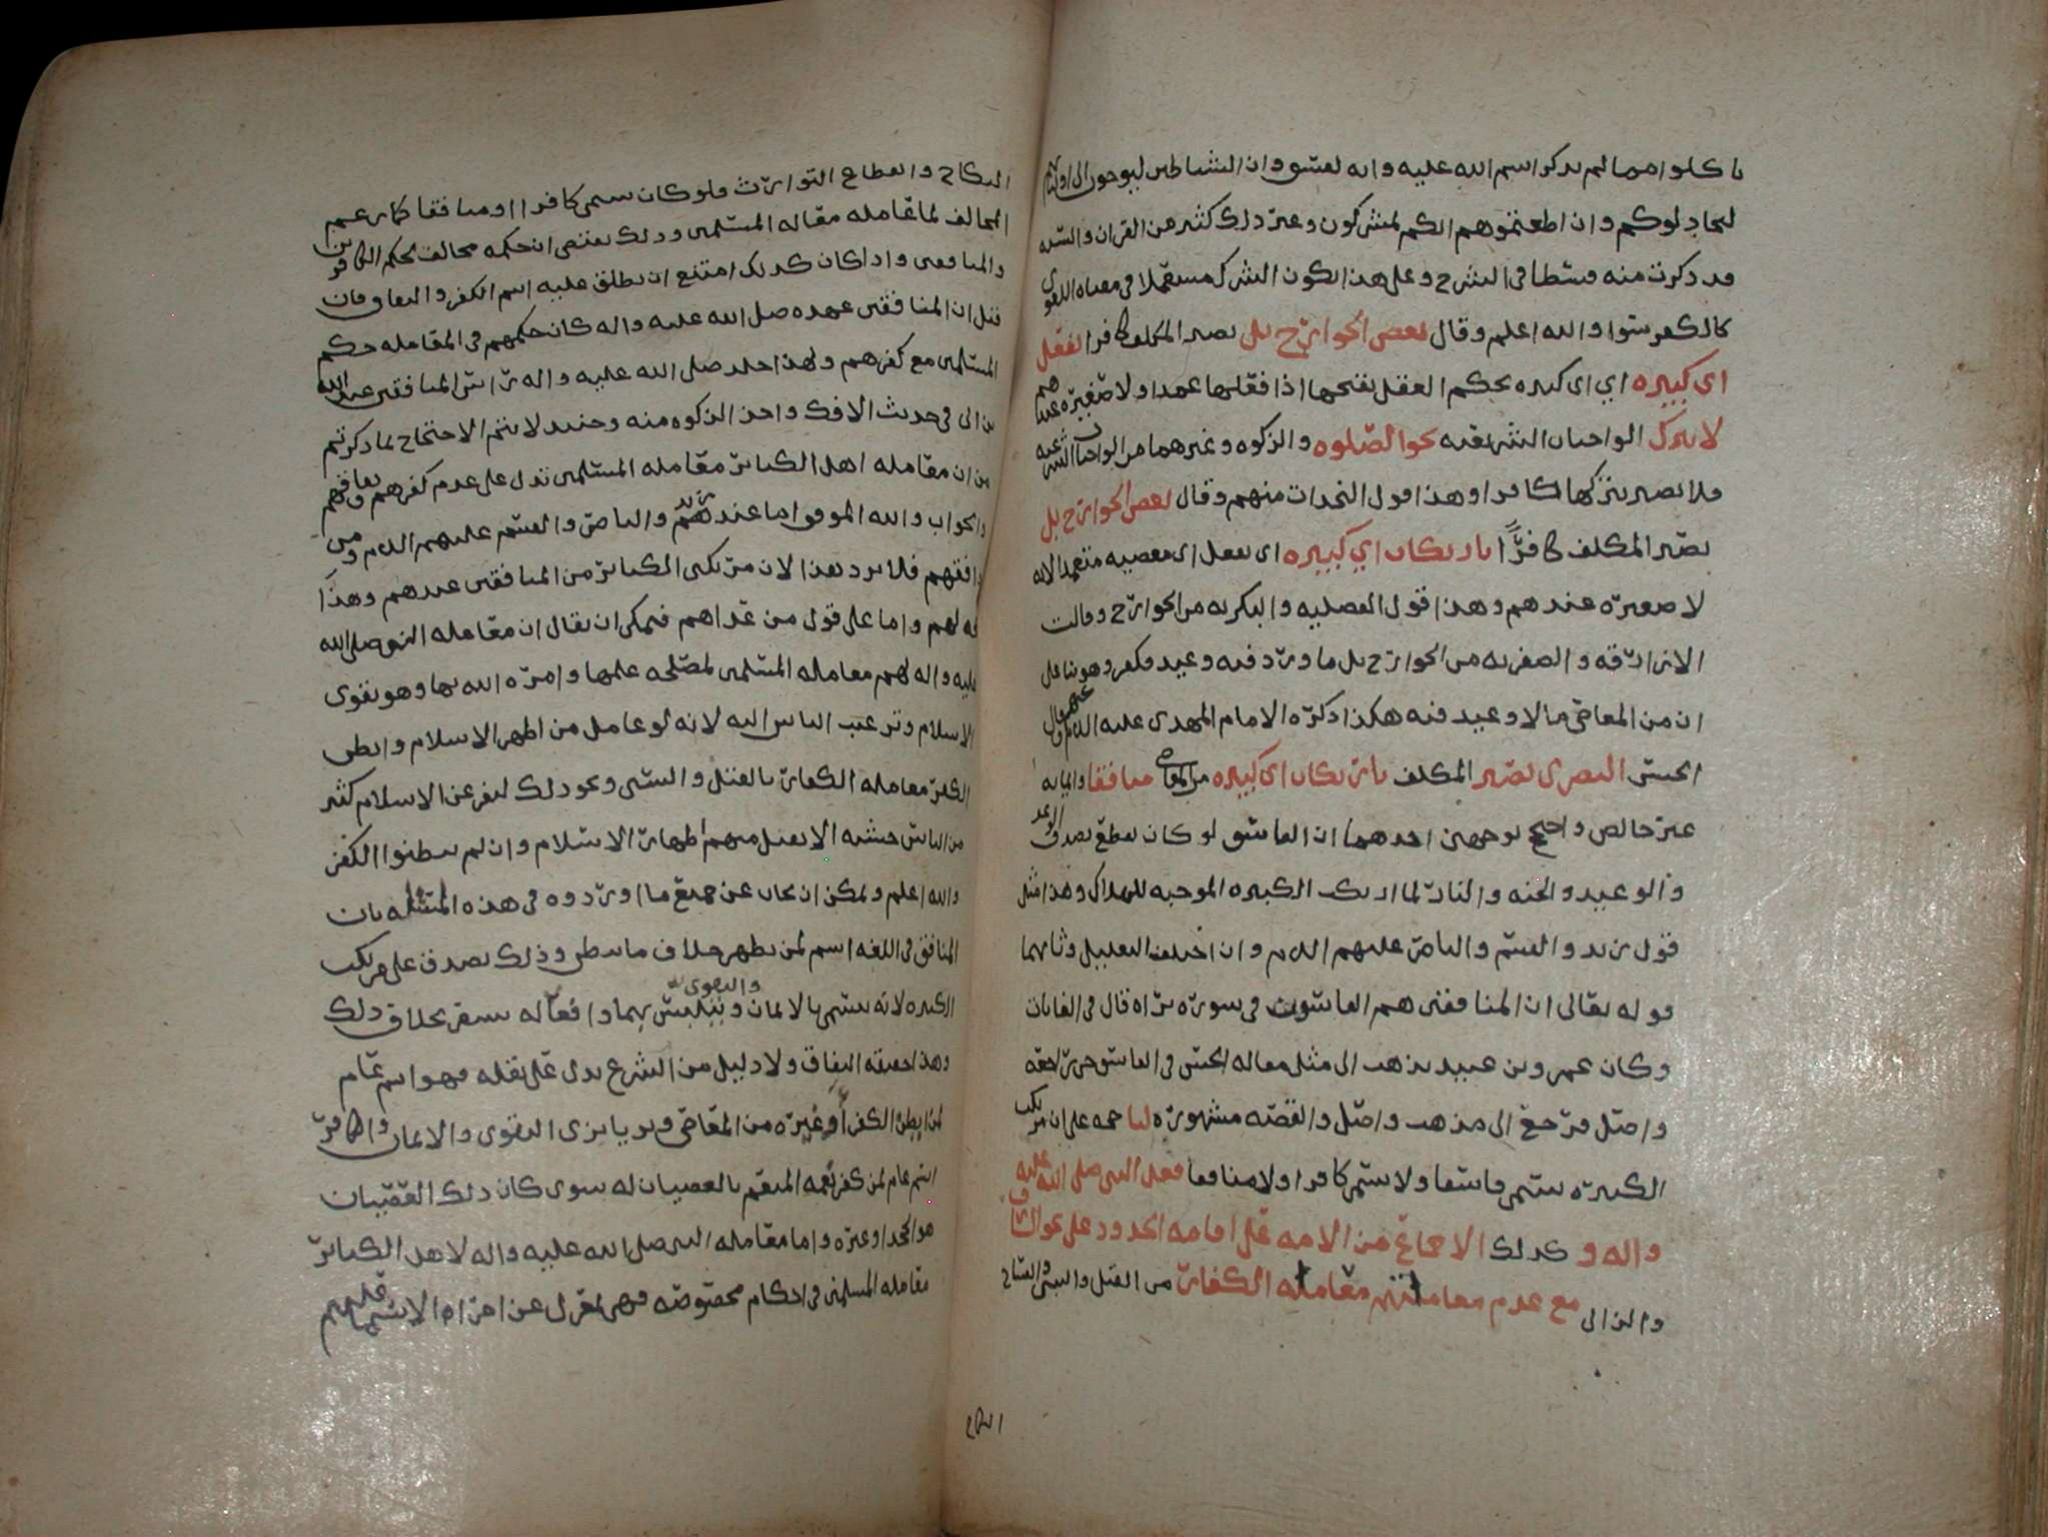 تاكلوا مما لم يذكر اسم الله عليه وانه لفسق وان الشياطين ليوحون الى اوليائهم
ليجادلوكم وان اطعتموهم انكم لمشركون وغير ذلك كثير من القران والسنه
قد ذكرت منه قسطا في الشرح وعلى هذا يكون الشرك مستعملا في معناه اللغوي
كالكفر سوا والله اعلم وقال بعض الخوارج بل يصير المكلف كافرا بفعل
اي كبيره اي اي كبيره بحكم العقل بقبحها اذا فعلها عمدا ولا صغيره عندهم
لا بترك الواجبات الشرعيه نحو الصلوه والزكوه وغيرهما من الواجبات الشرعيه
فلا يصير بتركها كافرا وهذا قول النجدات منهم وقال بعض الخوارج بل
يصير المكلف كافرًا بارتكاب اي كبيره اي بفعل اي معصيه متعمدا لانه
لا صغيره عندهم وهذا قول الفضليه والبكريه من الخوارج وقالت
الازارقه والصفريه من الخوارج بل ما ورد فيه وعيد فكفر وهو بنا على
ان من المعاصي ما لا وعيد فيه هكذا ذكره الامام المهدي عليه السلم عنهم وقال
الحسن البصري يصير المكلف بارتكاب اي كبيره من المعاصي منافقا وايمانه
غير خالص واحتج بوجهين احدهما ان الفاسق لو كان يقطع بصدق الوعد
والوعيد والجنه والنار لما ارتكب الكبيره الموجبه للهلاك وهذا مثل
قول زيد والقسم والناصر عليهم السلم وان اختلف التعليل وثانيهما
قوله تعالى ان المنافقين هم الفاسقون في سورة براه قال في الغايات
وكان عمرو بن عبيد يذهب الى مثل مقاله الحسن في الفاسق حتى راجعه
واصل فرجع الى مذهب واصل والقصه مشهوره لنا حجه على ان مرتكب
الكبيره يسمى فاسقا ولا يسمى كافرا ولا منافقا فعل النبي صلى الله عليه
واله وكذلك الاجماع من الامه على اقامه الحدود على نحو السارق
والزاني مع عدم معاملتهم معامله الكفار من القتل والسبي وانفساخ
النكاح
النكاح وانقطاع التوارث فلو كان يسمى كافرا او منافقا كما زعم
المخالف لما عامله معامله المسلمين وذلك يقتضي ان حكمه مخالف لحكم الكافرين
والمنافقين واذا كان كذلك امتنع ان يطلق عليه اسم الكفر والنفاق فان
قيل ان المنافقين عهده صلى الله عليه واله كان حكمهم في المعامله حكم
المسلمين مع كفرهم ولهذا جلد صلى الله عليه واله راس المنافقين عبد الله
بن ابي في حديث الافك واخذ الزكوه منه وحينئذ لا يتم الاحتجاج بما ذكرتم
من ان معامله اهل الكبائر معامله المسلمين تدل على عدم كفرهم ونفاقهم
والجواب والله الموفق اما عند زيد والناصر والقسم عليهم السلم ومن
وافقهم فلا يرد هذا لان مرتكبي الكبائر من المنافقين عندهم وهذا
له لهم واما على قول من عداهم فيمكن ان يقال ان معامله النبي صلى الله
عليه واله لهم معامله المسلمين لمصلحه علمها وامره الله بها وهو تقوي
الاسلام وترغيب الناس اليه لانه لو عامل من اظهر الاسلام وابطن
الكفر معامله الكفار بالقتل والسبي ونحو ذلك لنفر عن الاسلام كثير
من الناس خشيه الا يقبل منهم اظهار الاسلام وان لم يبطنوا الكفر
والله اعلم ويمكن ان يجاب عن جميع ما اوردوه في هذه المسئله بان
المنافق في اللغه اسم لمن يظهر خلاف ما يبطن وذلك يصدق على مرتكب
الكبيره لانه يسمى بالايمان والتقوى ويتلبس بهما وافعاله بخلاف ذلك
وهذا حقيقه النفاق ولا دليل من الشرع يدل على نقله فهو اسم عام
لمن ابطن الكفر أو غيره من المعاصي وتزيا بزي التقوى والايمان والكافر
اسم عام لمن كفر نعمه المنعم بالعصيان له سوى كان ذلك العصيان
هو الجحد او غيره واما معامله النبي صلى الله عليه واله لاهل الكبائر
معامله المسلمين في احكام مخصوصه فهي بمعزل عن اجراه الاسم عليهم